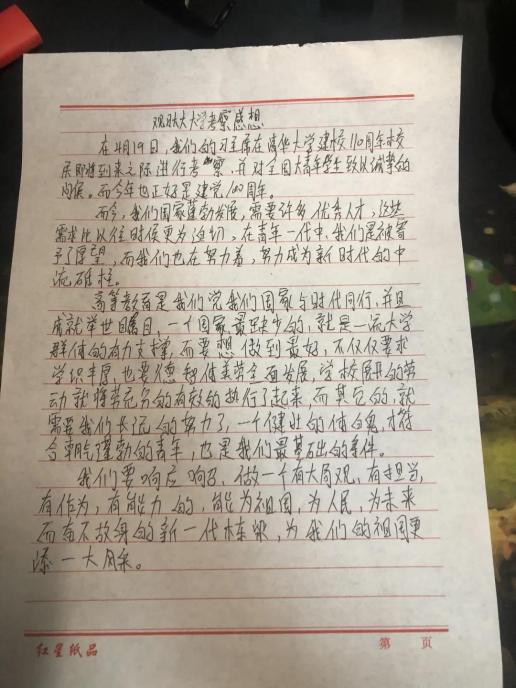 观习大大大学考察感想
在4月19日,我们的习主席在清华大学建校110周年校
庆即将到来之际进行考察,并对全国大青年学生致以诚挚的
问候。而今年也正好是建党100周年。
而今,我们国家蓬勃发展,需要许多优秀人才,这些
需求比以往时侯更为迫切,在青年一代中,我们是被寄
予了愿望,而我们也在努力着,努力成为新时代的中
流砥柱。
高等教育是我们党我们国家与时代同行,并且
成就举世瞩目,一个国家最缺少的,就是一流大学
群体的有力支撑,而要想做到最好,不仅仅要求
学识丰厚,也要德智体美劳全面发展,学校的劳
动就将劳充分的有效的执行了起来,而其它的,就
需要我们长远的努力了,一个健壮的体魄,才符
合朝气蓬勃的青年,也是我们最基础的条件。
我们要响应响召,做一个有大局观,有担当,
有作为,有能力的,能为祖国,为人民,为未来
而奋不顾身的新一代栋梁,为我们的祖国更
添一大风采。
红星纸品
第 页